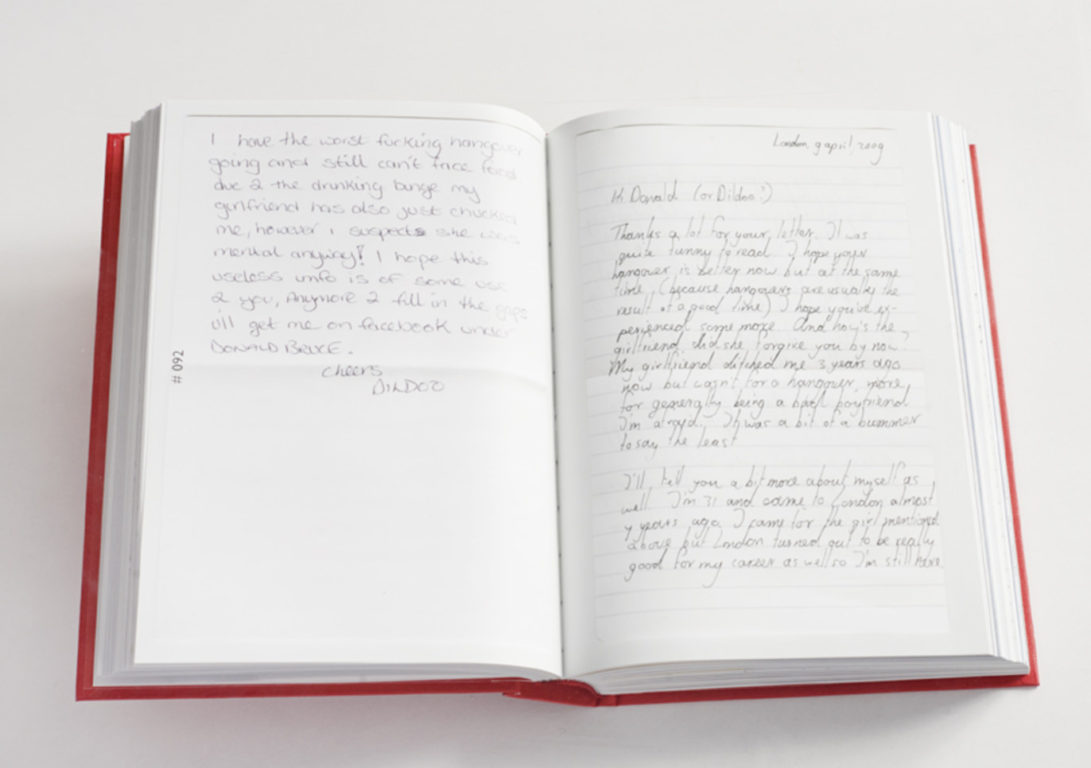 I have the worst fucking hangover
going and still can't face food
due 2 the drinking binge my
girlfriend has also just chucked
me, however i suspects she was
mental anyway! I hope this
useless info is of some use
2 you, Anymore 2 fill in the gaps
i'll get me on facebook under
DONALD BRUCE.
Cheers
DILDOO
# 092
London, 9 april, 2009
Hi Donald (or Dildoo!)
Thanks a lot for your letter. It was
quite funny to read. I hope your
hangover is better now but at the same
time, (because hangovers are usually the
result of a good time) I hope you've ex-
perienced some more. And how's the
girlfriend, did she forgive you by now?
My girlfriend ditched me 3 years ago
now but wasn't for a hangover, more
for generally being a bad boyfriend
I'm afraid. It was a bit of a bummer
to say the least
I'll tell you a bit more about myself as
well. I'm 31 and came to London almost
4 years ago. I came for the girl mentioned
above but London turned out to be really
good for my career as well so I'm still here